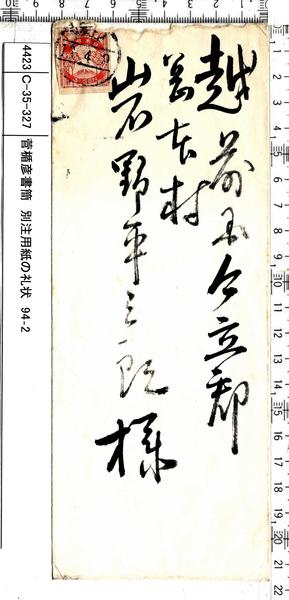 越前国今立郡
岡本村
岩野平三郎
様
4423 C-35-327 菅楯彦書簡 別注用紙の礼状 94-2